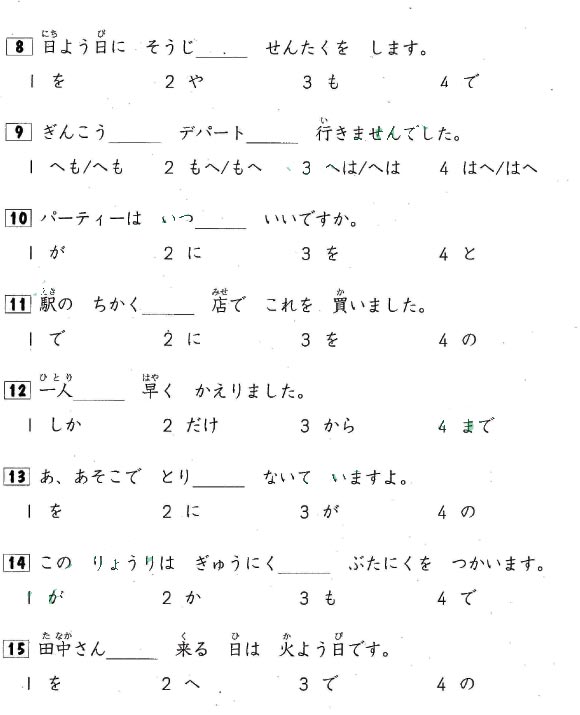 8 日よう日に そうじ____ せんたくを します。
1 を 2 や 3 も 4 で
9 ぎんこう____ デパート____ 行きませんでした。
1 へも/へも 2 もへ/もへ 3 へは/へは 4 はへ/はへ
10 パーティーは いつ____ いいですか。
1 が 2 に 3 を 4 と
11 駅の ちかく____ 店で これを 買いました。
1 で 2 に 3 を 4 の
12 一人____ 早く かえりました。
1 しか 2 だけ 3 から 4 まで
13 あ、あそこで とり____ ないて いますよ。
1 を 2 に 3 が 4 の
14 この りょうりは ぎゅうにく____ ぶたにくを つかいます。
1 が 2 か 3 も 4 で
15 田中さん____ 来る 日は 火よう日です。
1 を 2 へ 3 で 4 の